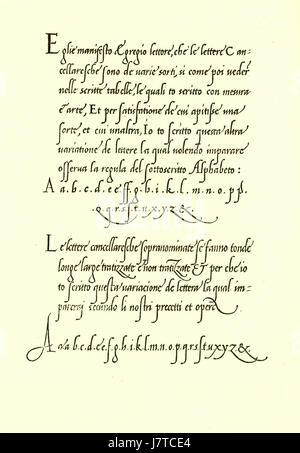 Eglie manifesto Egregio lettore, che le lettere Can=
cellaresche sono de varie sorti, si come poi veder
nelle scritte tabelle, le quali to scritto con mesura
e arte, Et per satisfatione de cui apitisse una
sorte, et cui unaltra, Io to scritto questa altra
variatione de lettere la qual volendo imparare
osserva la regula del sottoscritto Alphabeto:
A a.b.c.d.e.e f.g.b.i.k.l.m.n.o.p.p.
q.q.r.s.t.u.x.y.z.&.
Le lettere cancellaresche sopranominate se fanno tonde
longe large tratizzate e non tratizzate ET per che io
to scritto questa variacione de lettera la qual im=
pareraj secundo li nostri precetti et opera
A a.a.b.c.d.e.f.g.h.i.k.l.m.n.o.p.q.r.s.s.t.u.x.y.z.&.
alamy
Image ID: J7TCE4
www.alamy.com